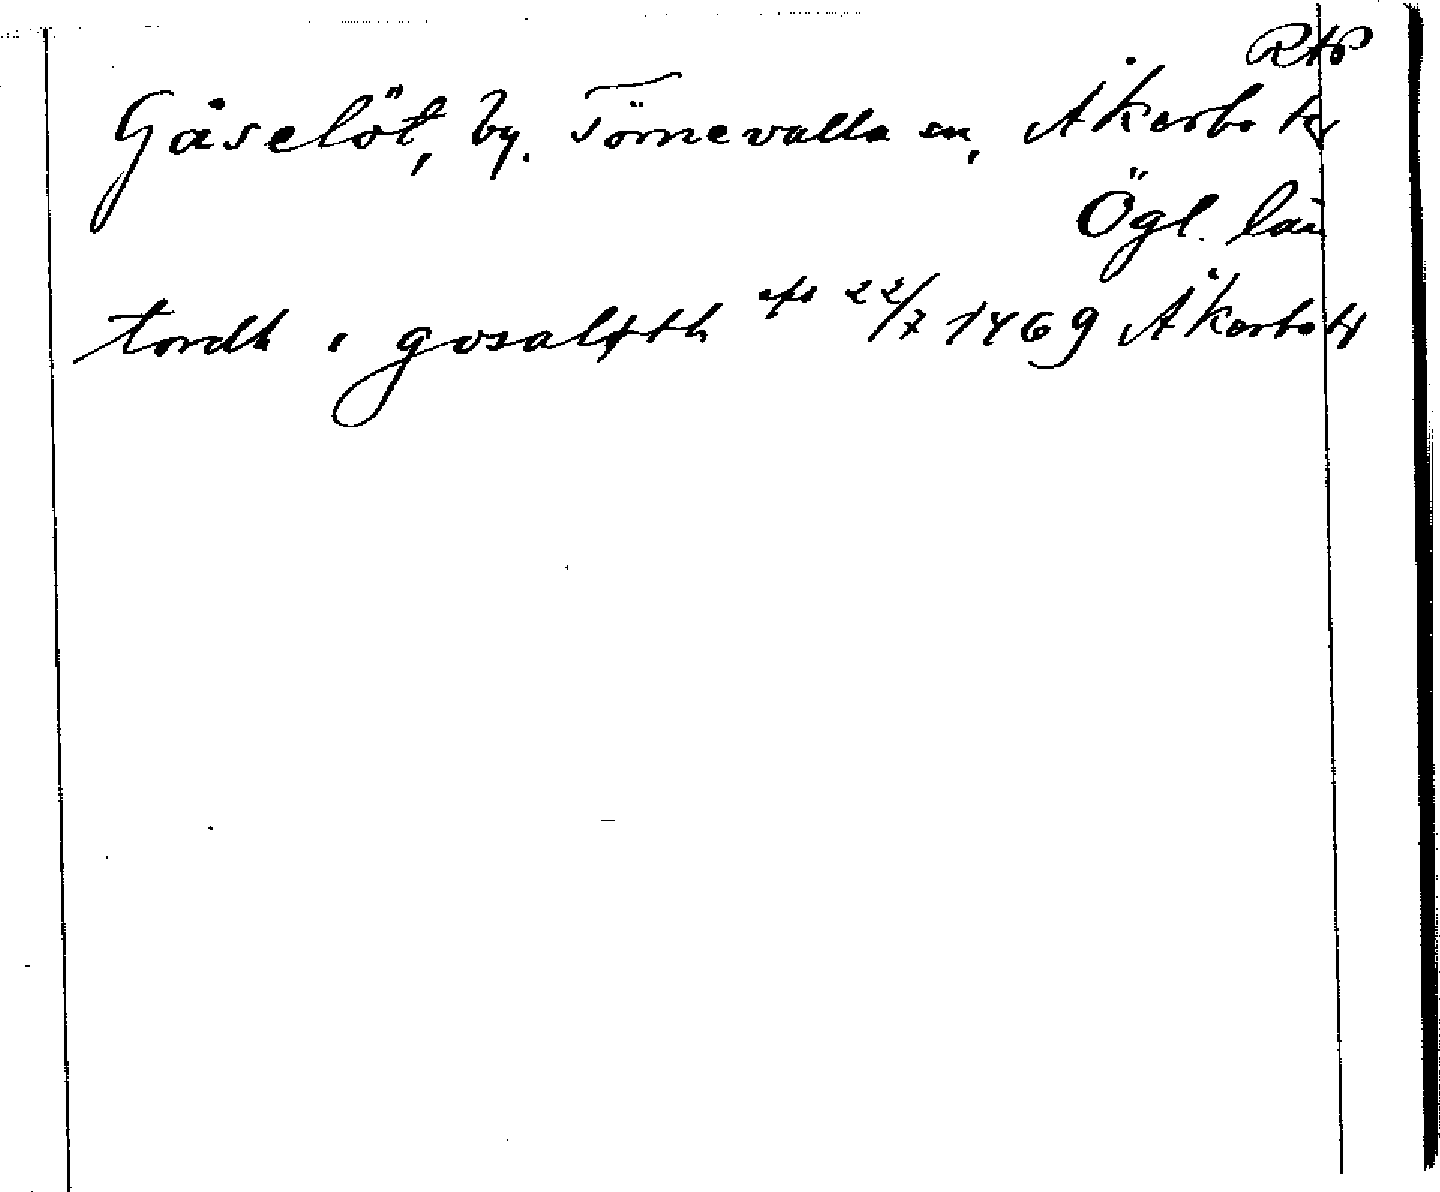 Gåselöt, by. Törnevalla sn, Åkerbo hr
Ögl. län
tordh i gosaløth afs 22/7 1469 Åkerbo hr